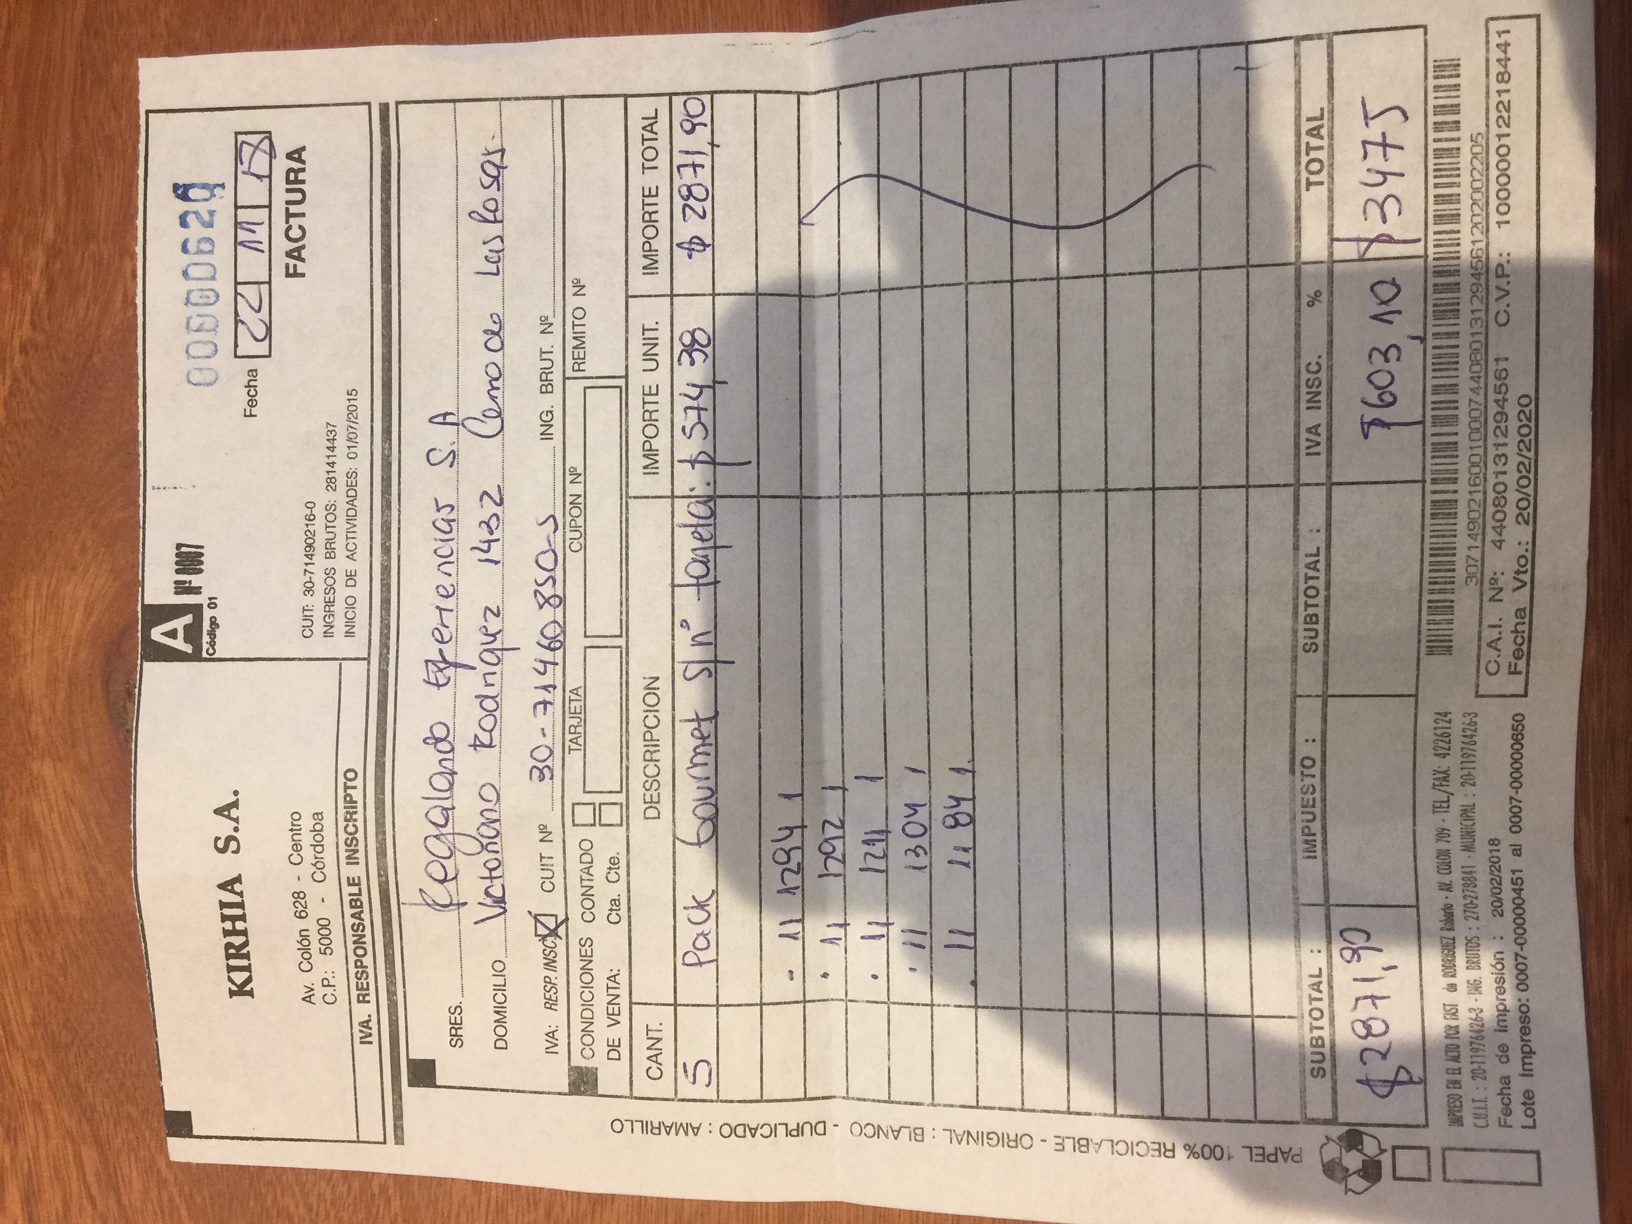 KIRHIA S.A.
Av. Colón 628 - Centro
C.P.: 5000 - Córdoba
IVA. RESPONSABLE INSCRIPTO
A
Código 01
Nº 0007
Fecha 22 11 18
FACTURA
CUIT: 30-71490216-0
INGRESOS BRUTOS: 281414437
INICIO DE ACTIVIDADES: 01/07/2015
SRES. Regalando Experiencias S.A
DOMICILIO Victoriano Rodriguez 1432 Cerro de Las Rosas.
IVA: RESP. INSC. CUIT Nº 30-71460850-5 ING. BRUT. Nº
CONDICIONES CONTADO TARJETA CUPON Nº REMITO Nº
DE VENTA: Cta. Cte.
CANT. DESCRIPCION IMPORTE UNIT. IMPORTE TOTAL
5 Pack Gourmet s/nº tarjeta: $574,38 $2871,90
- 11 1294 1
· 11 1292 1
· 11 1211 1
· 11 1304 1
. 11 1184 1.
SUBTOTAL : IMPUESTO : SUBTOTAL : IVA INSC. % TOTAL
$2871,90 $603,10 $3475
IMPRESO EN EL ACTO POR FAST de RODRIGUEZ Roberto - AV. COLON 709 - TEL./FAX: 4226124
C.U.I.T. : 20-11976426-3 - ING. BRUTOS : 270-278841 - MUNICIPAL : 20-11976426-3
Fecha de Impresión : 20/02/2018
Lote Impreso: 0007-00000451 al 0007-00000650
307149021600100074408013129456120200 2205
C.A.I. Nº: 44080131294561 C.V.P.: 10000012218441
Fecha Vto.: 20/02/2020
PAPEL 100% RECICLABLE - ORIGINAL : BLANCO - DUPLICADO : AMARILLO